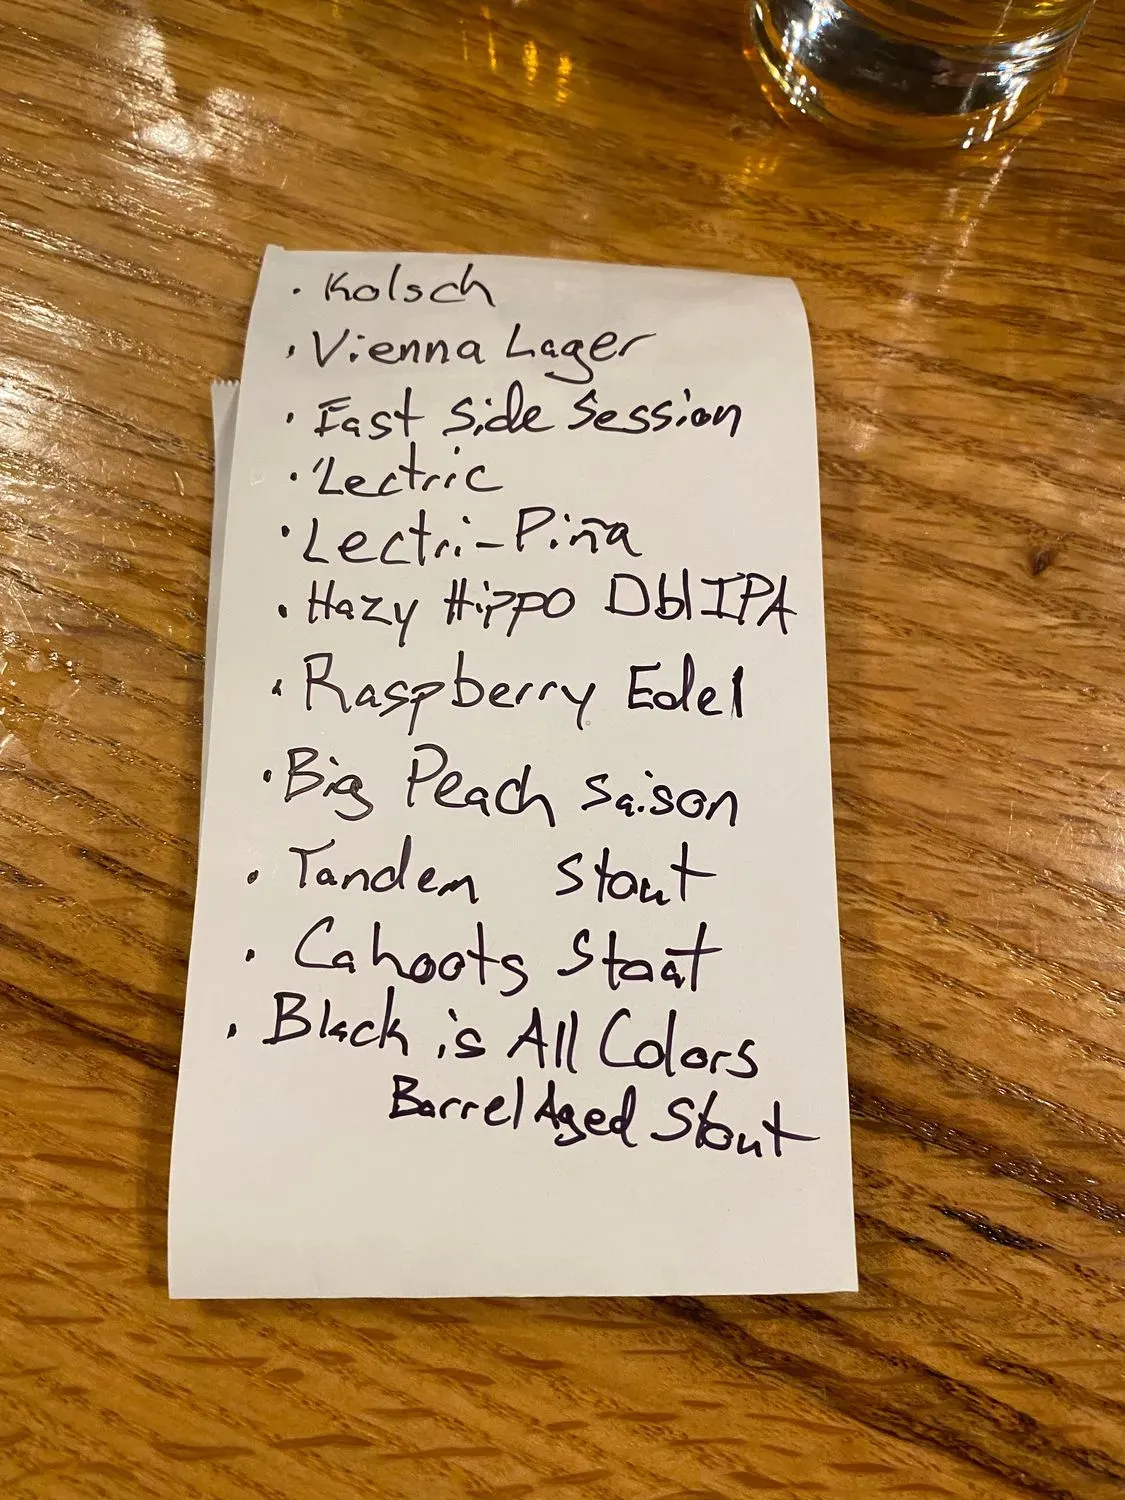 · Kolsch
· Vienna Lager
· East Side Session
· 'Lectric
· Lectri-Piña
· Hazy Hippo Dbl IPA
· Raspberry Edel
· Big Peach Saison
· Tandem Stout
· Cahoots Stout
· Black is All Colors
Barrel Aged Stout